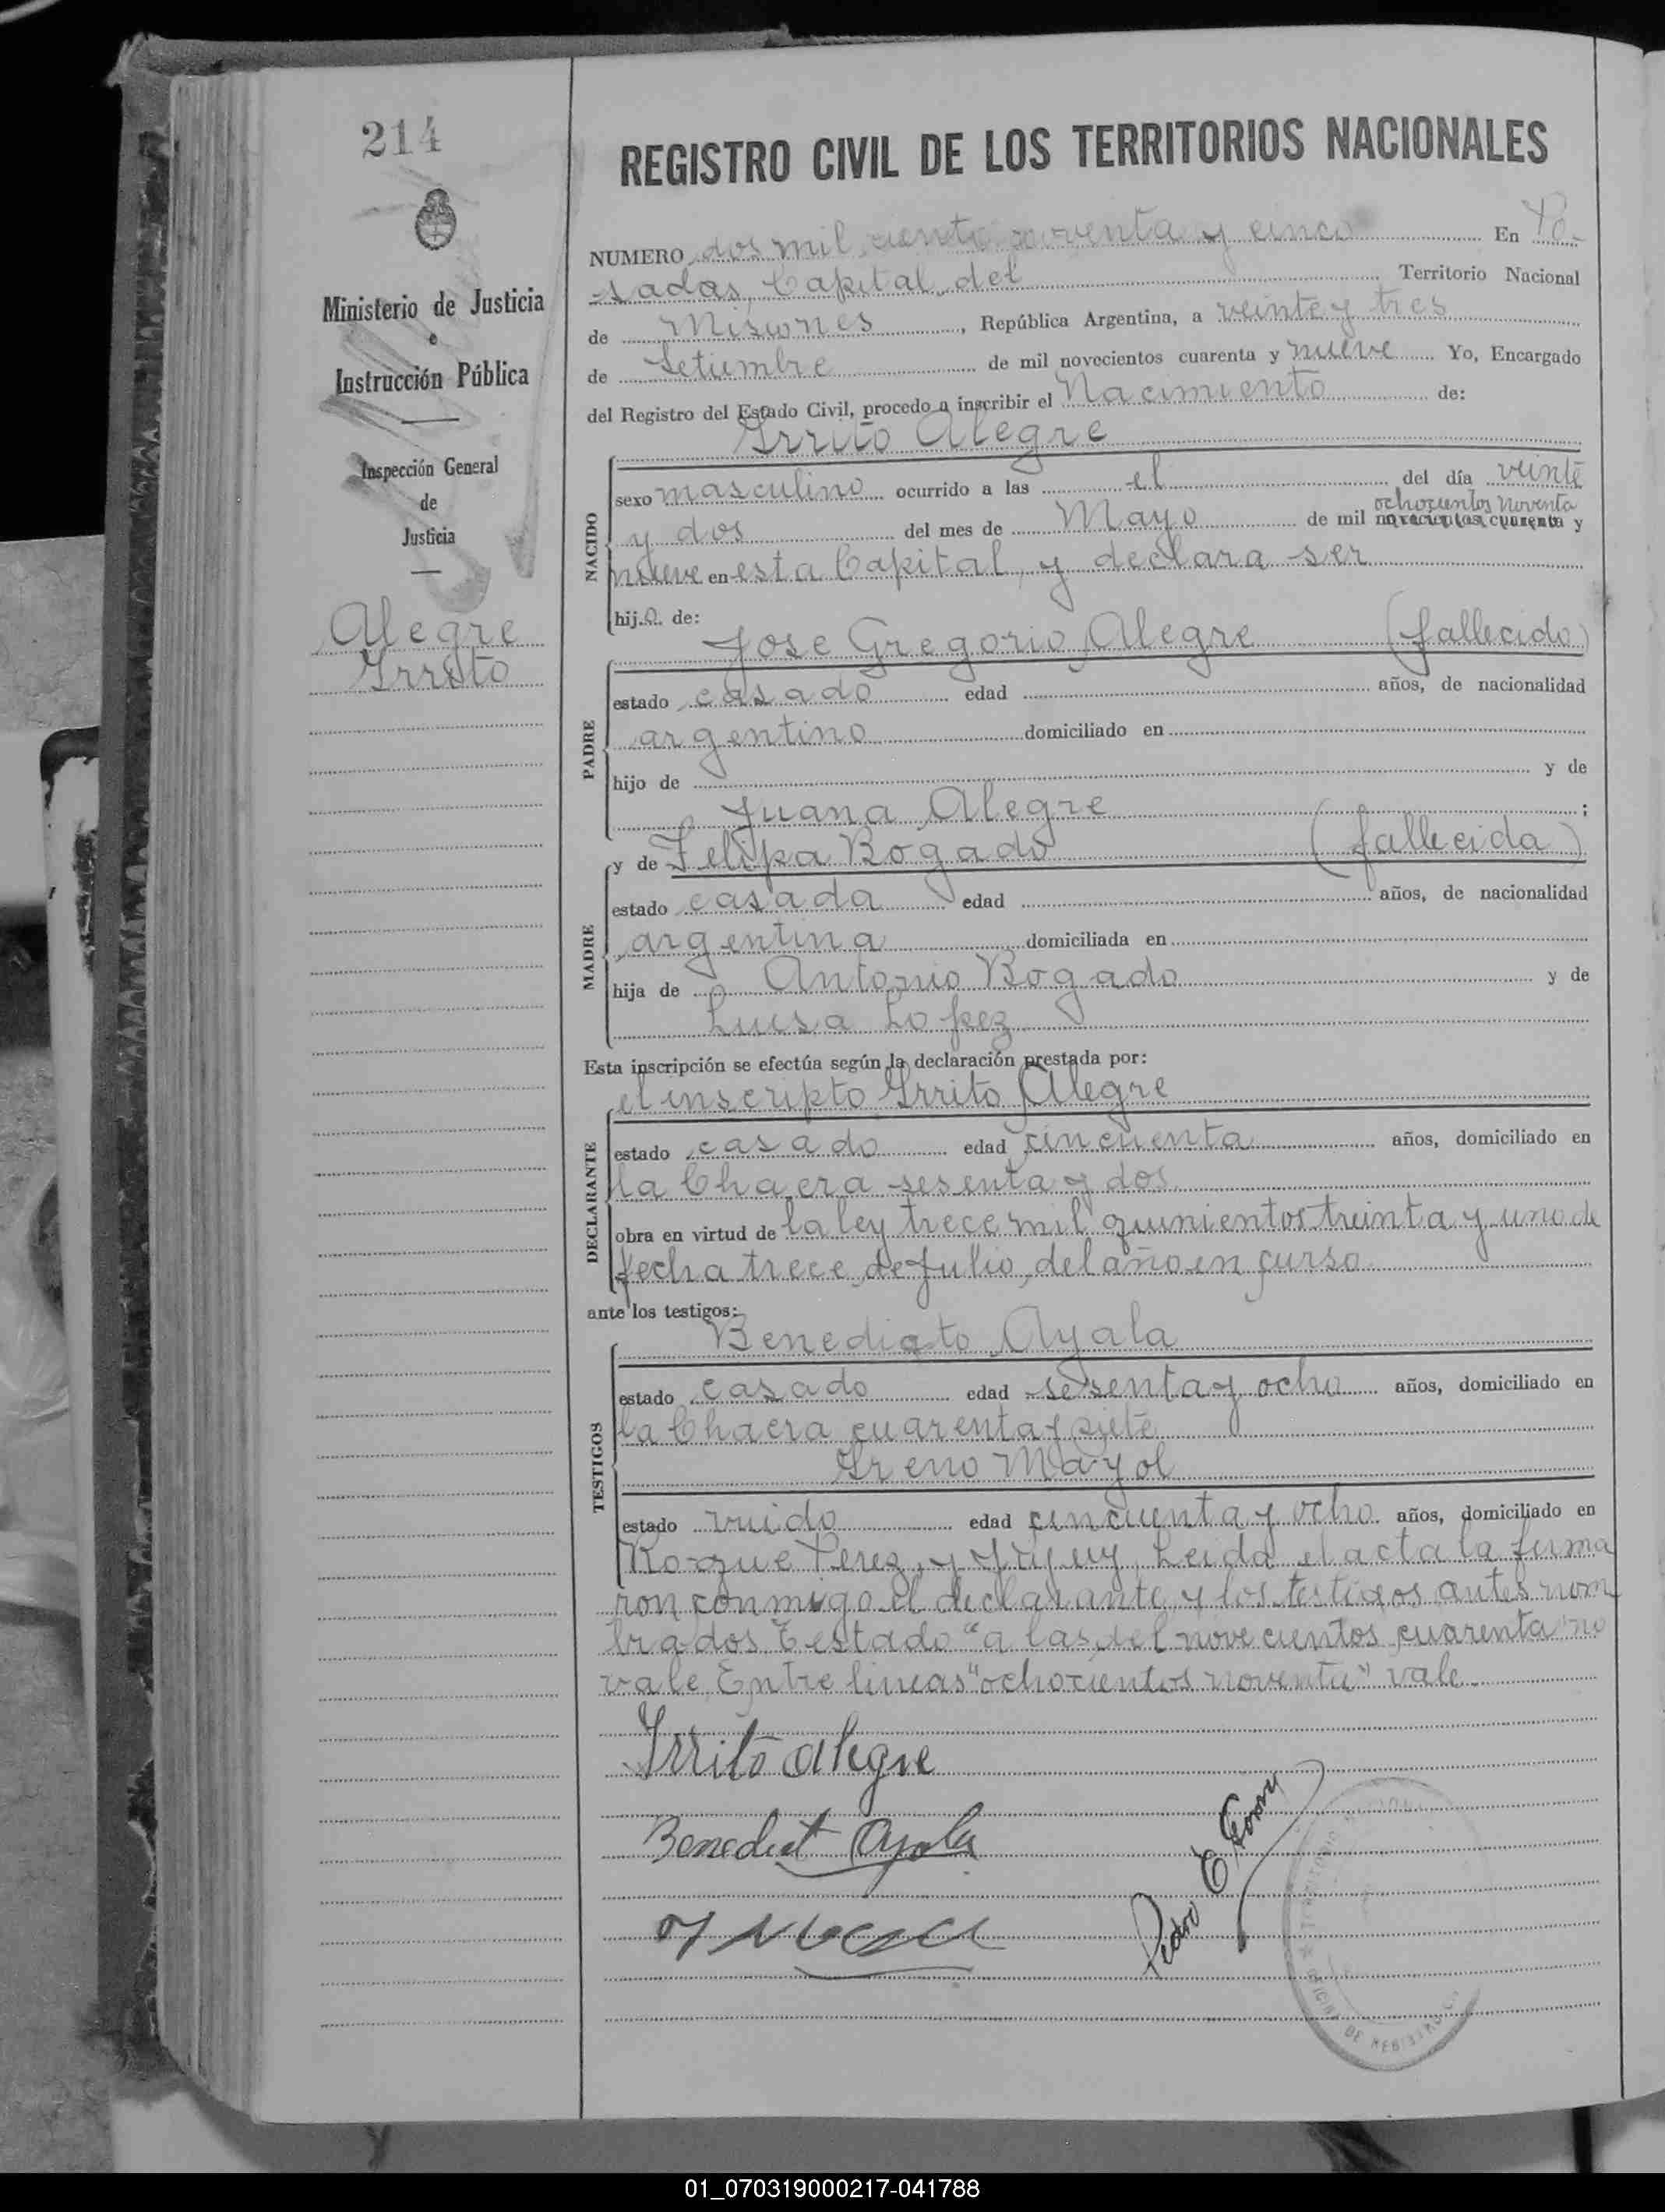 214
REGISTRO CIVIL DE LOS TERRITORIOS NACIONALES
NUMERO dos mil ciento noventa y cinco En Po-
sadas, Capital del Territorio Nacional
de Misiones, República Argentina, a veinte y tres
de Setiembre de mil novecientos cuarenta y nueve Yo, Encargado
del Registro del Estado Civil, procedo a inscribir el Nacimiento de:
Irrito Alegre
Ministerio de Justicia
e
Instrucción Pública
Inspección General
de
Justicia
Alegre
Irrito
NACIDO
sexo masculino ocurrido a las el del día veinte
ochocientos noventa
y dos del mes de Mayo de mil novecientos cuarenta y
nueve en esta Capital, y declara ser
hijo de:
PADRE
Jose Gregorio Alegre (fallecido)
estado casado edad años, de nacionalidad
argentino domiciliado en
hijo de y de
Juana Alegre ;
MADRE
y de Felipa Bogado (fallecida)
estado casada edad años, de nacionalidad
argentina domiciliada en
hija de Antonio Bogado y de
Luisa Lopez
Esta inscripción se efectúa según la declaración prestada por:
DECLARANTE
el inscripto Irrito Alegre
estado casado edad cincuenta años, domiciliado en
la Chacra sesenta y dos
obra en virtud de la ley trece mil quinientos treinta y uno de
fecha trece de Julio del año en curso
ante los testigos:
TESTIGOS
Benedicto Ayala
estado casado edad sesenta y ocho años, domiciliado en
la Chacra cuarenta y siete
Ireno Mayol
estado viudo edad cincuenta y ocho años, domiciliado en
Roque Perez y Jujuy. Leida el acta la firma
ron conmigo el declarante y los testigos antes nom
brados. Testado "a las, del novecientos cuarenta" no
vale. Entre lineas "ochocientos noventa" vale
Irrito Alegre
Benedict Ayala
Pedro E
DE REGISTRO
01_070319000217-041788